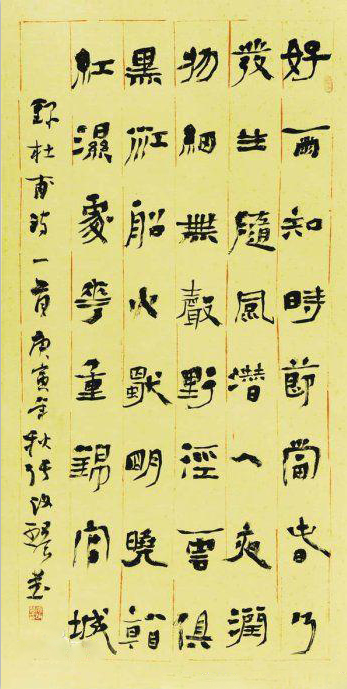 好雨知時節當春乃
發生隨風潛入夜潤
物細無聲野徑雲俱
黑江船火獨明曉看
紅濕處華重錦官城
録杜甫詩一首庚寅年秋張改琴書